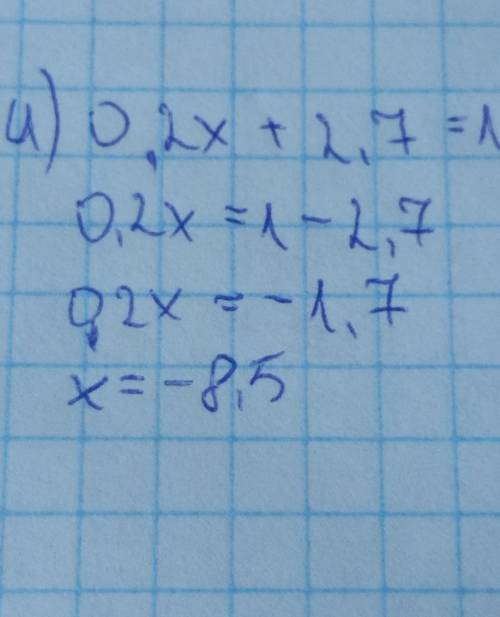 и) 0,2x + 2,7 = 1
0,2x = 1 - 2,7
0,2x = - 1,7
x = - 8,5